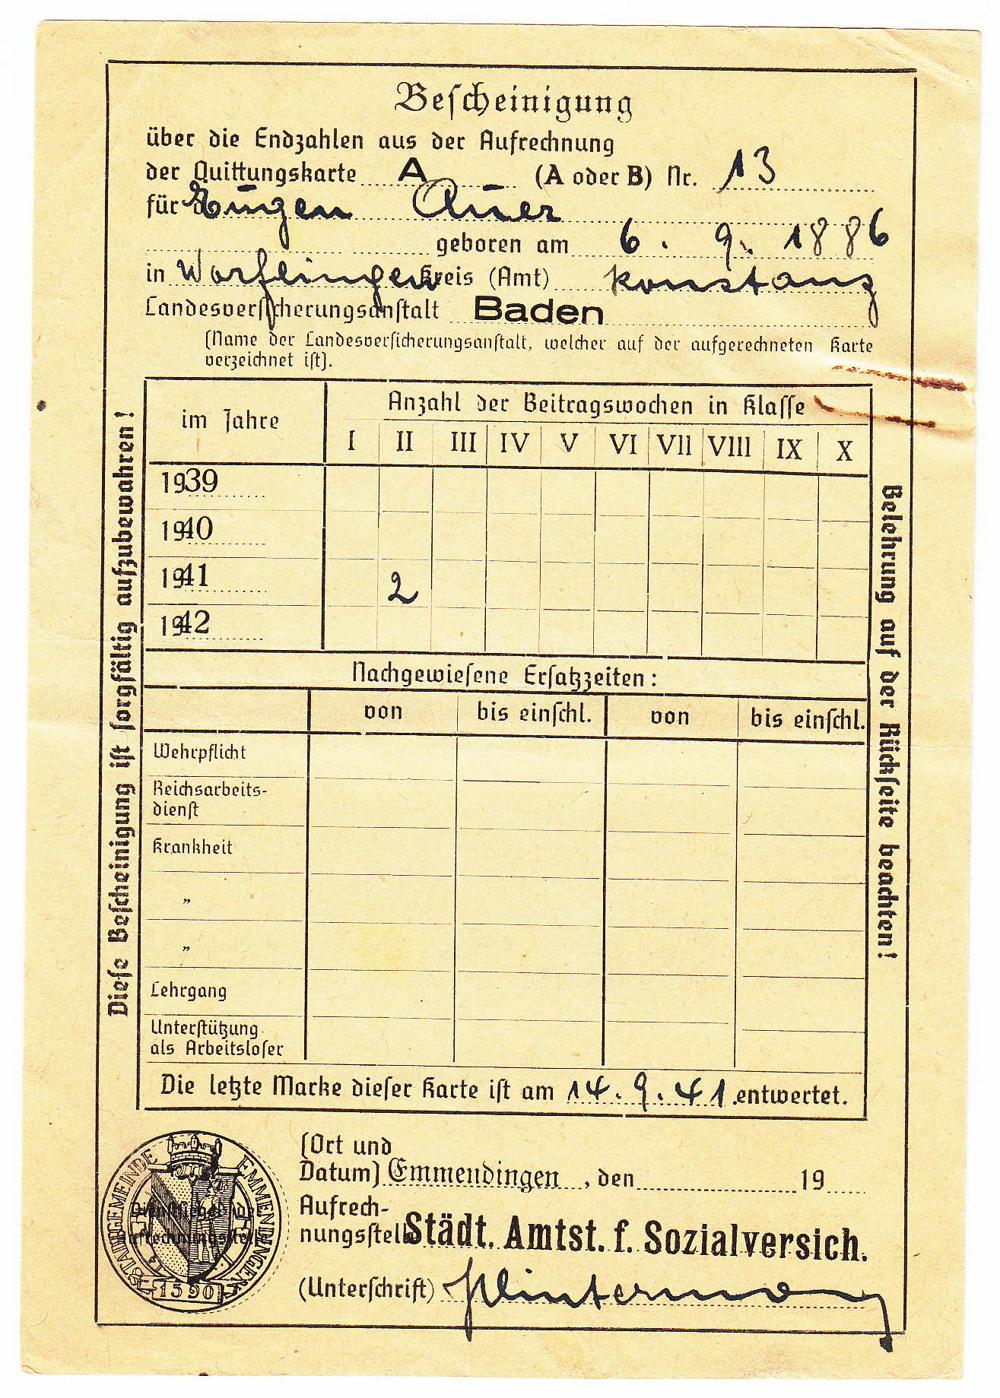 Bescheinigung
über die Endzahlen aus der Aufrechnung
der Quittungskarte A (A oder B) Nr. 13
für Eugen Auer
geboren am 6. 9. 1886
in Worflingen Kreis (Amt) Konstanz
Landesversicherungsanstalt Baden
(Name der Landesversicherungsanstalt, welcher auf der aufgerechneten Karte
verzeichnet ist).
im Jahre
Anzahl der Beitragswochen in Klasse
I II III IV V VI VII VIII IX X
1939
1940
1941 2
1942
Nachgewiesene Ersatzzeiten:
von bis einschl. von bis einschl.
Wehrpflicht
Reichsarbeits-
dienst
Krankheit
"
"
Lehrgang
Unterstützung
als Arbeitsloser
Die letzte Marke dieser Karte ist am 14. 9. 41. entwertet.
Diese Bescheinigung ist sorgfältig aufzubewahren!
Belehrung auf der Rückseite beachten!
(Ort und
Datum) Emmendingen, den 19
Aufrech-
nungsstelle Städt. Amtst. f. Sozialversich.
(Unterschrift)
STADTGEMEINDE EMMENDINGEN
1590
Dienstsiegel der
Aufrechnungsstelle